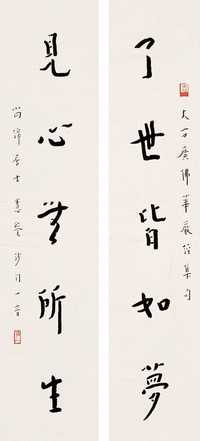 大方廣佛華嚴經集句
了世皆如夢
見心無所生
尚居士慧沙門一音